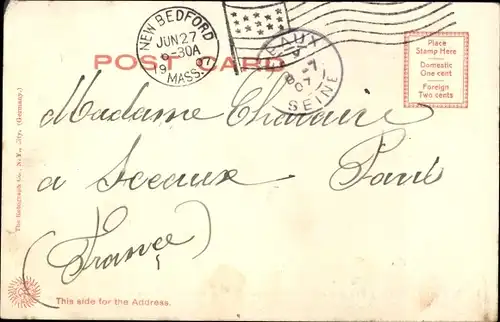 NEW BEDFORD
JUN 27
9-30A
19 07
MASS.
POST CARD
SCEAUX
SEINE
07
Place
Stamp Here
Domestic
One cent
Foreign
Two cents
Madame
a Sceaux Paris
(France)
The Rotograph Co., N.Y., City. (Germany.)
This side for the Address.